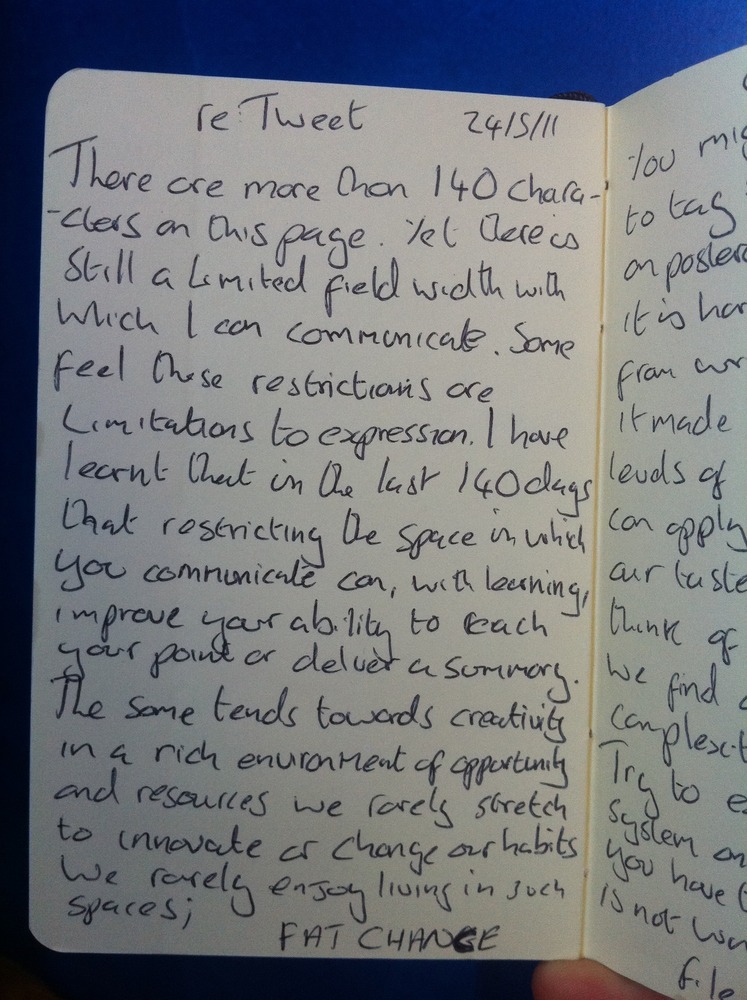 re: Tweet 24/5/11
There are more than 140 chara-
-cters on this page. Yet there is
still a limited field width with
which I can communicate. Some
feel these restrictions are
limitations to expression. I have
learnt that in the last 140 days
that restricting the space in which
you communicate can, with learning,
improve your ability to reach
your point or deliver a summary.
The same tends towards creativity
in a rich environment of opportunity
and resources we rarely stretch
to innovate or change our habits
We rarely enjoy living in such
spaces;
FAT CHANCE
You mig
to tag
on poster
it is har
from
it made
levels of
can apply
our taste
think of
we find
complexit
Try to e
system on
you have
is not
file